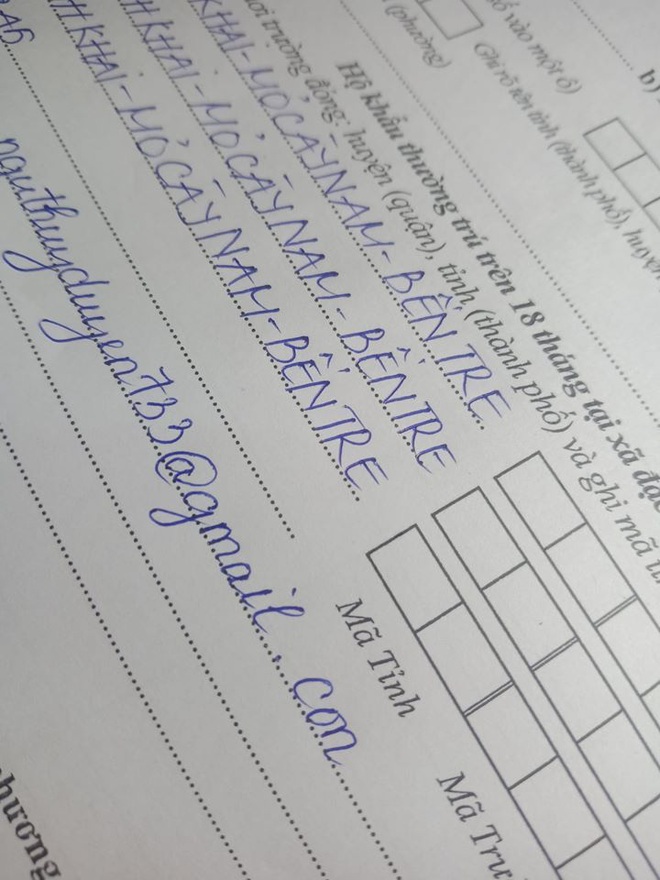 ố vào một ô)
b)
(phường)
Ghi rõ tên tỉnh (thành phố), huyện
Hộ khẩu thường trú trên 18 tháng tại xã đặc
trường đóng: huyện (quận), tỉnh (thành phố) và ghi mã
KHAI - MỎ CÀY NAM - BẾN TRE
H KHAI - MỎ CÀY NAM - BẾN TRE
H KHAI - MỎ CÀY NAM - BẾN TRE
Mã Tỉnh
Mã Trư
nguthuyduyen733@gmail.con
hương